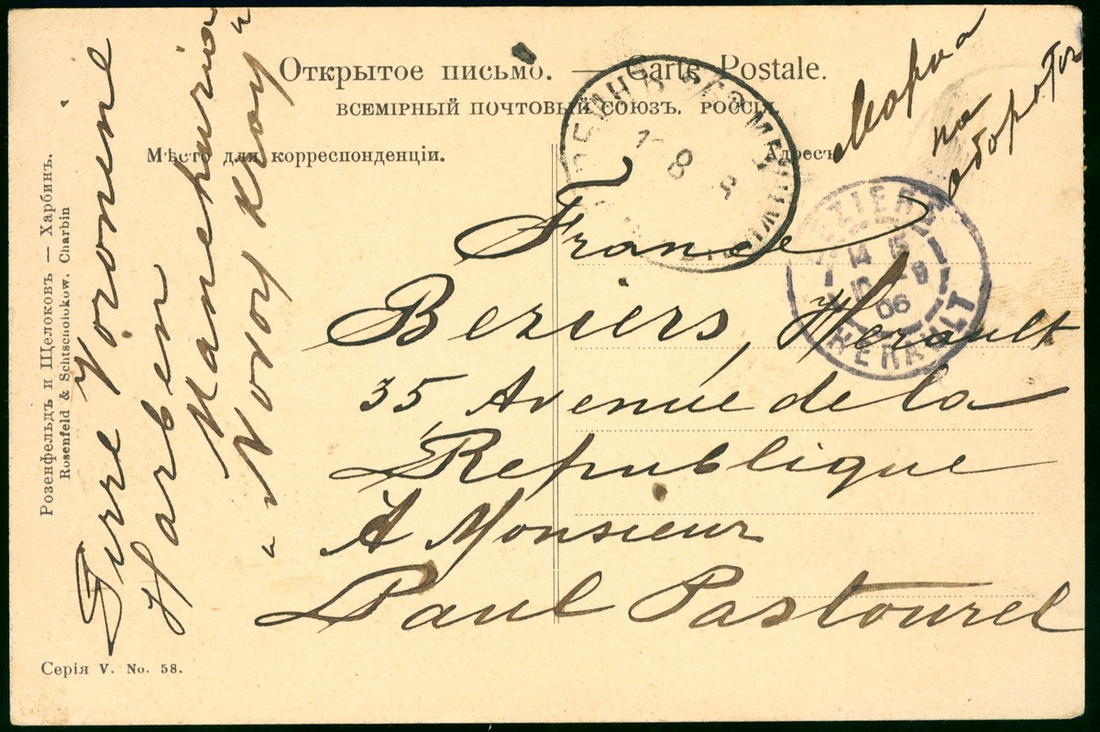 Открытое письмо. — Carte Postale.
ВСЕМІРНЫЙ ПОЧТОВЫЙ СОЮЗЪ. РОССІЯ
Мѣсто для корреспонденціи.
Адресъ
Марка
на
оборотѣ
France
Beziers, Herault
35, Avenue de la
Republique
A Monsieur
Paul Pastourel
BEZIERS
14 15
10 - 9
06
HERAULT
8
Pirre Voronine
Harben
Manchuria
"Novoy Kray"
Розенфельдъ и Щелоковъ — Харбинъ.
Rosenfeld & Schtscholokow. Charbin
Серія V. No. 58.